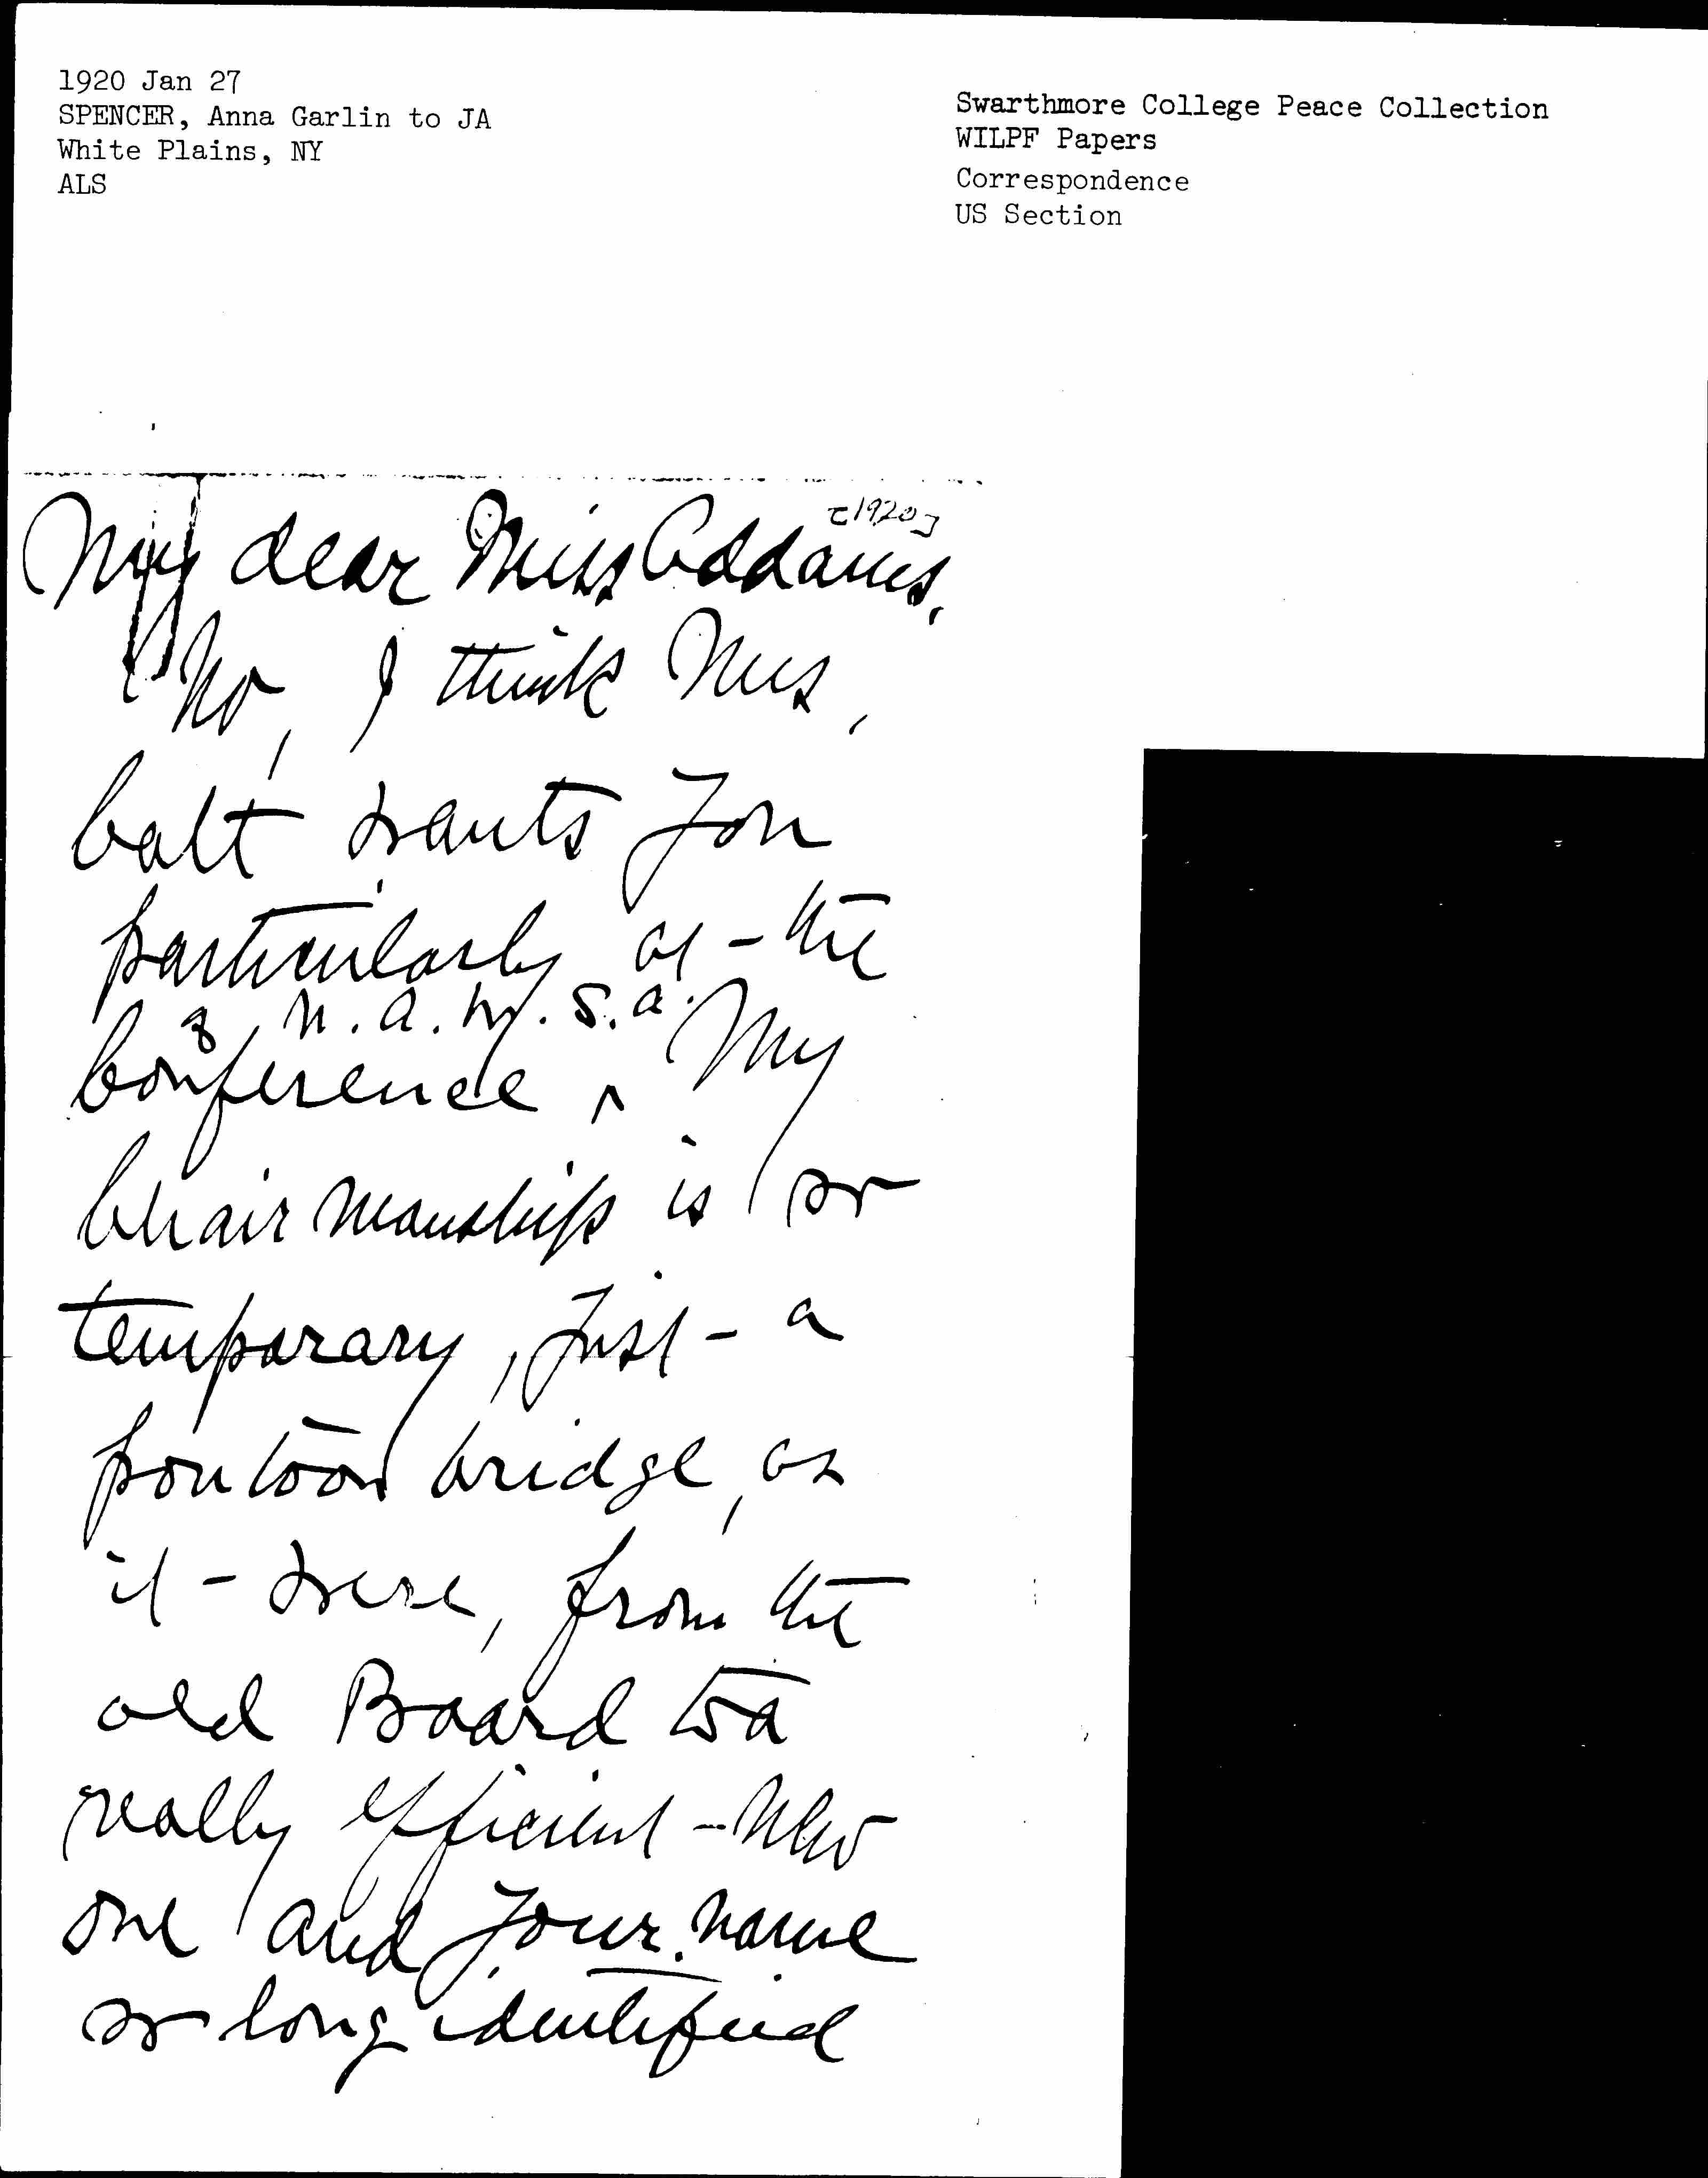 1920 Jan 27
SPENCER, Anna Garlin to JA
White Plains, NY
ALS
Swarthmore College Peace Collection
WILPF Papers
Correspondence
US Section
[1920]
My dear Miss Addams,
No, I think Mrs.
Catt wants you
particularly at the
of N.A.W.S.A.
Conference ^ My
Chairmanship is so
temporary, just a
pontoon bridge, as
it were, from the
old Board to a
really efficient new
one and your name
so long identified